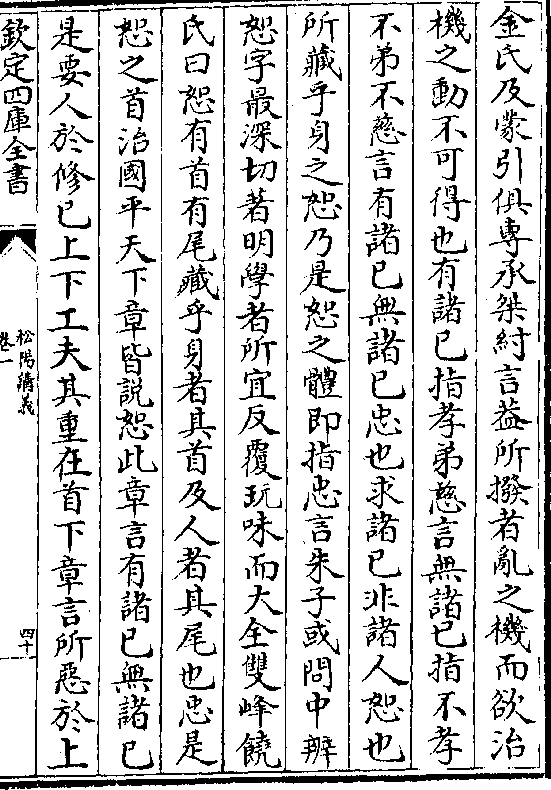 金氏及蒙引俱専承桀紂言葢所撥者亂之機而欲治
機之動不可得也有諸已指孝弟慈言無諸已指不孝
不弟不慈言有諸已無諸已忠也求諸已非諸人恕也
所藏乎身之恕乃是恕之體即指忠言朱子或問中辨
恕字最深切著明學者所宜反覆玩味而大全雙峰饒
氏曰恕有首有尾藏乎身者其首及人者其尾也忠是
恕之首治國平天下章皆説恕此章言有諸已無諸已
是要人於修已上下工夫其重在首下章言所惡於上
欽定四庫全書
松陽講義
卷一
四十